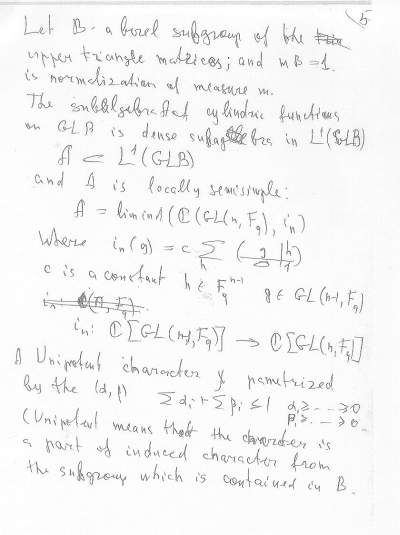 5
Let B - a borel subgroup of the
upper triangle matrices; and mB=1
is normalization of measure m.
The subalgebra A of cylindric functions
on GLB is dense subalgebra in L¹(GLB)
A ⊂ L¹(GLB)
and A is locally semisimple:
A = lim ind (ℂ(GL(n, F_q), i_n)
where i_n(g) = c ∑_h (g h / 0 1)
c is a constant h ∈ F_q^{n-1} g ∈ GL(n-1, F_q)
i_n: ℂ[GL(n-1, F_q)] → ℂ[GL(n, F_q)]
A Unipotent character χ parametrized
by the (α, β) ∑α_i + ∑β_i ≤ 1 α_1 ≥ ... ≥ 0
β_1 ≥ ... ≥ 0
(Unipotent means that the character is
a part of induced character from
the subgroup which is contained in B.